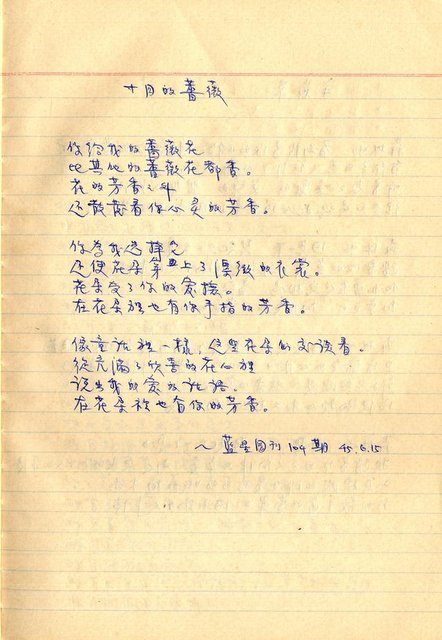 十月的薔薇
你給我的薔薇花
比其他的薔薇花都香。
花的芳香之外
还散發着你心灵的芳香。
你為我选擇它
还使花朵穿上了漂緻的衣裳。
花朵受了你的愛撫。
在花朵裡也有你手指的芳香。
像童話裡一樣，这些花朵的交談着。
從充滿了欣喜的花心裡
說出我的愛的話語。
在花朵裡也有你的芳香。
～藍星週刊104期 45.6.15